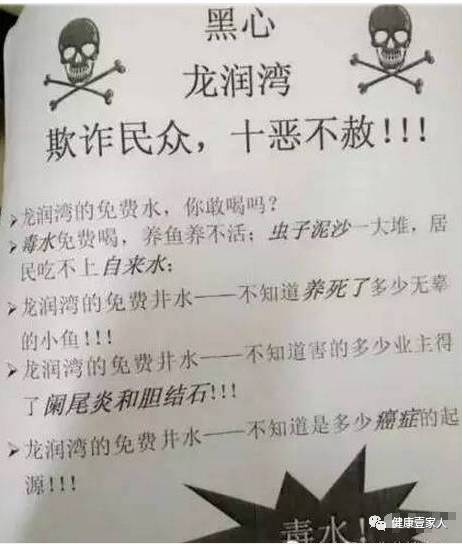 黑心
龙润湾
欺诈民众，十恶不赦!!!
➢龙润湾的免费水，你敢喝吗？
➢毒水免费喝，养鱼养不活；虫子泥沙一大堆，居
民吃不上自来水；
➢龙润湾的免费井水——不知道养死了多少无辜
的小鱼!!!
➢龙润湾的免费井水——不知道害的多少业主得
了阑尾炎和胆结石!!!
➢龙润湾的免费井水——不知道是多少癌症的起
源!!!
毒水!
健康壹家人